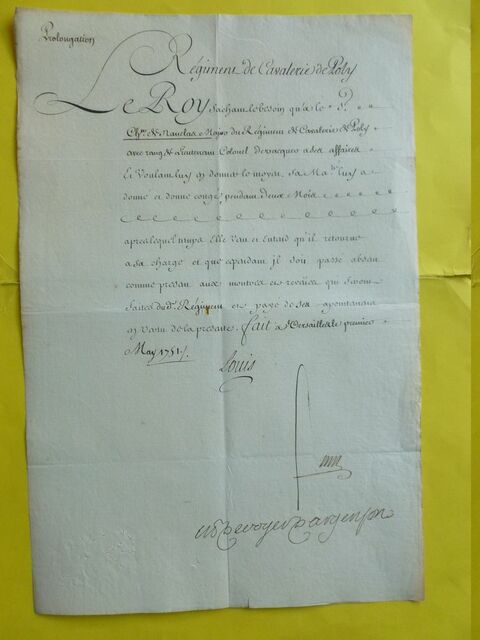 Prolongation
Régiment de Cavalerie de Poly
Le Roy Sachant le besoin qu'a le S.
Ch.er de Major du Régiment de Cavalerie de Poly
avec rang de Lieutenant Colonel de vacquer a ses affaires
Et Voulant luy en donner le moyen Sa Ma.té luy a
donné et donne congé pendant deux Mois
apres lequel temps Elle veut et Entend qu'il retourne
a sa charge et que cependant il soit passé absent
comme present aux montres et reveües qui seront
faites dud. Régiment et payé de ses apointemens
en vertu de la presente. fait a Versailles le premier
May 1751.
Louis
M P de voyer d'argenson